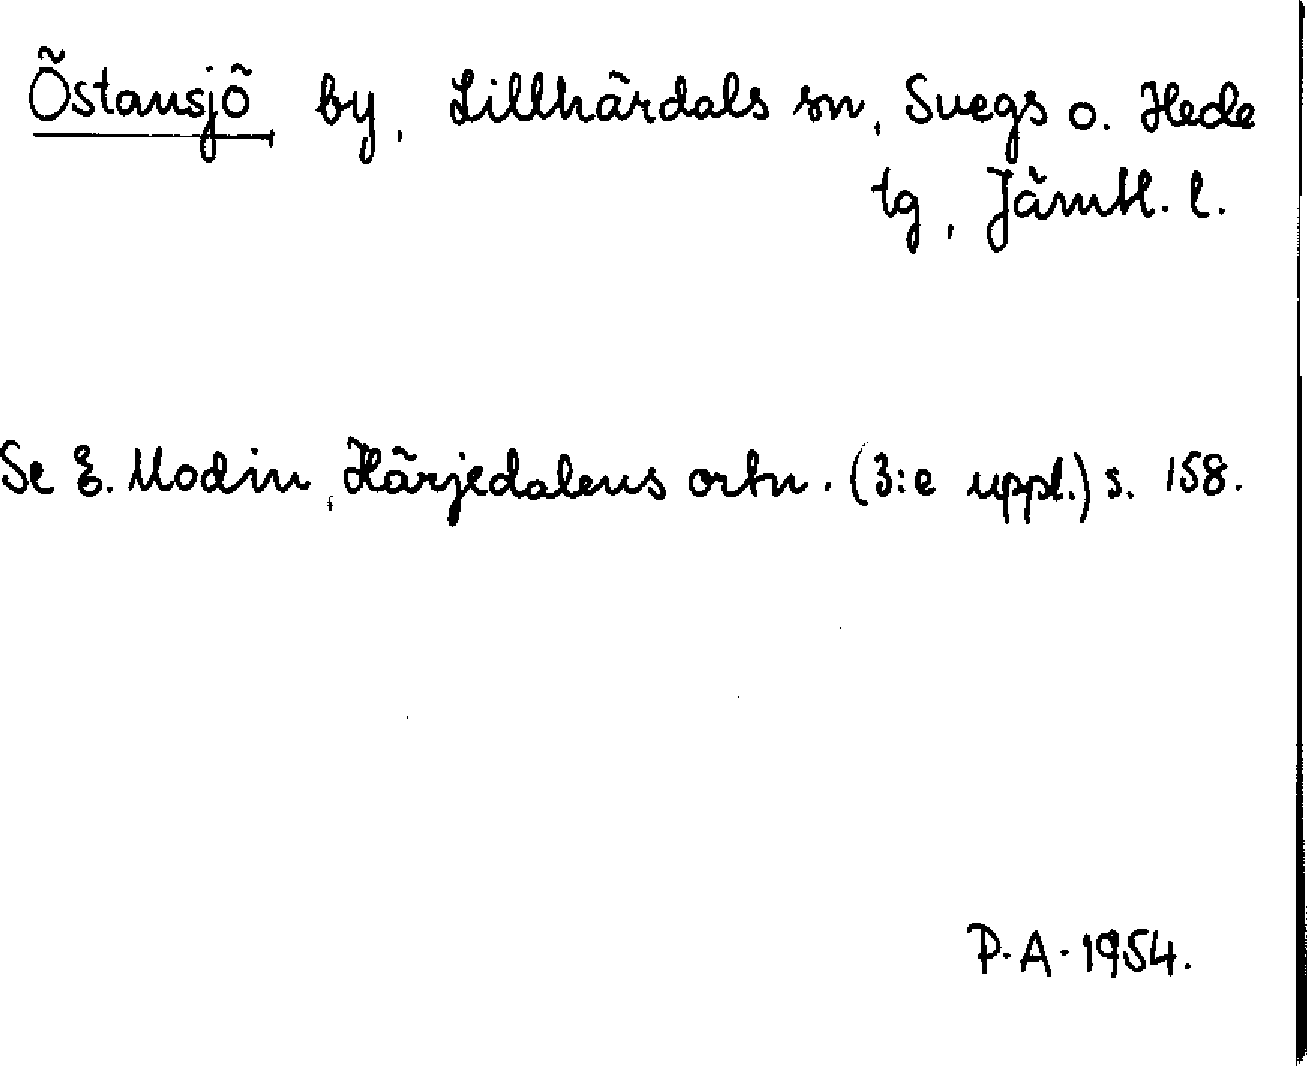 Östansjö by, Lillhärdals sn, Svegs o. Hede
tg, Jämtl. l.
Se E. Modin, Härjedalens ortn. (3:e uppl.) s. 158.
P. A. 1954.